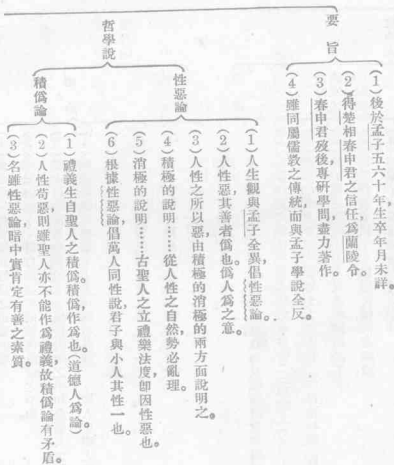 要旨
(1)後於孟子五六十年,生卒年月未詳。
(2)得楚相春申君之信任,為蘭陵令。
(3)春申君歿後,專研學問,盡力著作。
(4)雖同屬儒教之傳統,而與孟子學說全反。
哲學說
性惡論
(1)人生觀與孟子全異,倡性惡論。
(2)人性惡,其善者僞也。僞人爲之意。
(3)人性之所以惡,由積極的消極的兩方面說明之。
(4)積極的說明……從人性之自然,勢必亂理。
(5)消極的說明……古聖人之立禮樂法度,卽因性惡也。
(6)根據性惡論,倡萬人同性說,君子與小人其性一也。
積僞論
(1)禮義生自聖人之積僞。積僞,作爲也。(道德人爲論)
(2)人性苟惡,則雖聖人亦不能作爲禮義,故積僞論有矛盾。
(3)名雖性惡論,暗中實肯定有善之素質。